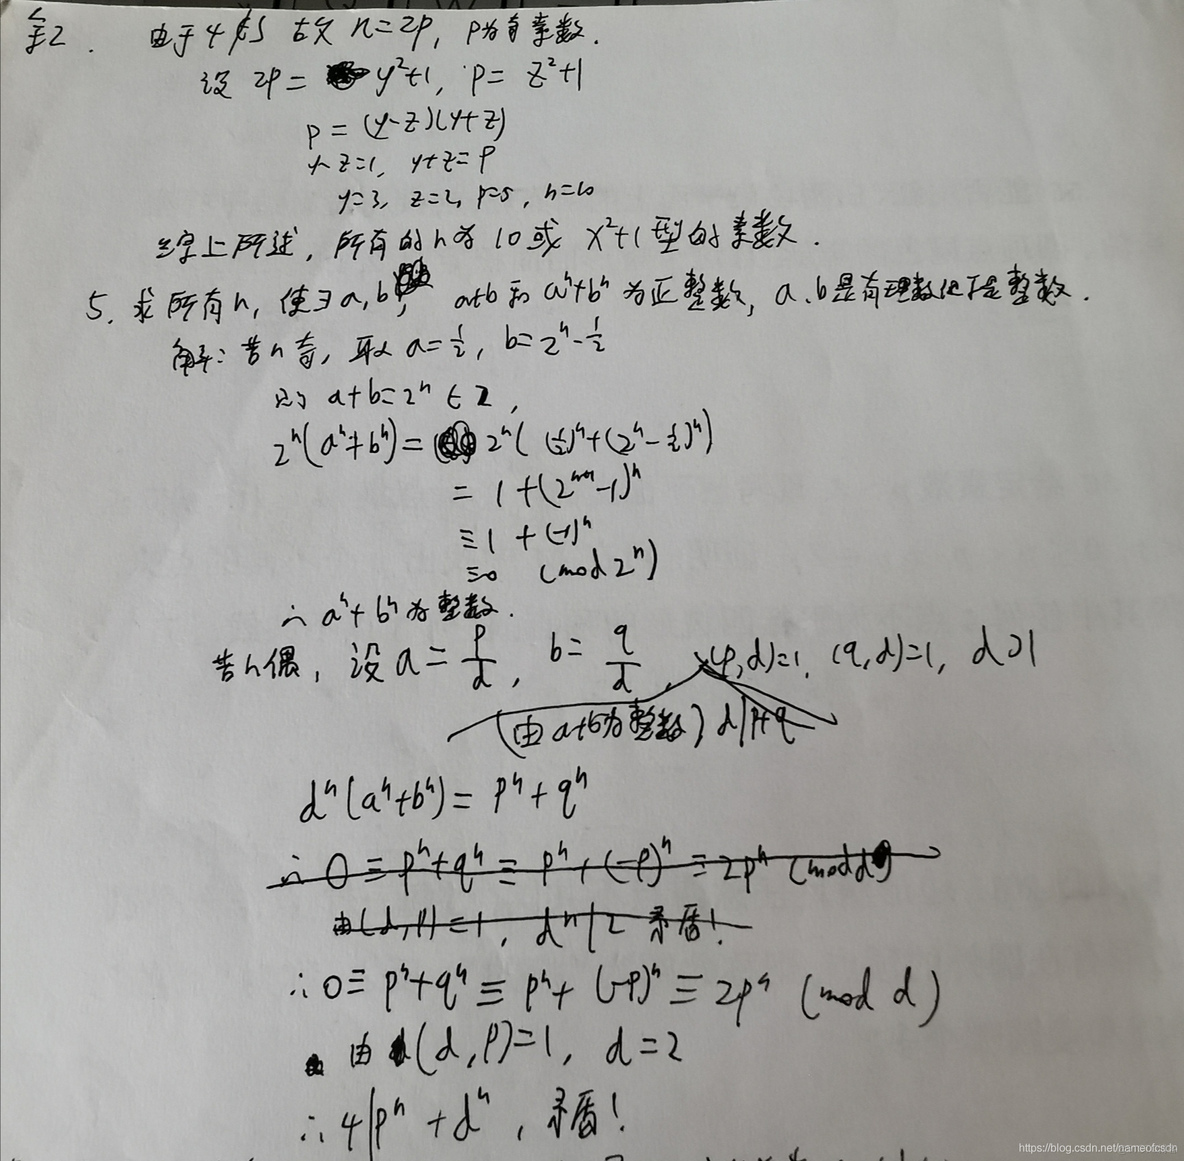 由于4∤S 故 n=2p, p为奇素数.
设 2p= y²+1, p= z²+1
p=(y-z)(y+z)
y-z=1, y+z=p
y=3, z=2, p=5, n=10
综上所述, 所有的n为10或 x²+1型的素数.
5. 求所有n, 使∃a,b, a+b和aⁿ+bⁿ为正整数, a.b是有理数但不是整数.
解: 若n奇, 取 a=1/2, b=2ⁿ-1/2
则 a+b=2ⁿ∈Z,
2ⁿ(aⁿ+bⁿ)= 2ⁿ((1/2)ⁿ+(2ⁿ-1/2)ⁿ)
= 1+(2ⁿ⁺¹-1)ⁿ
≡1+(-1)ⁿ
≡0 (mod 2ⁿ)
∴ aⁿ+bⁿ为整数.
若n偶, 设a=p/d, b=q/d, (p,d)=1, (q,d)=1, d>1
(由a+b为整数) d|p+q
dⁿ(aⁿ+bⁿ)= pⁿ+qⁿ
∴ 0≡pⁿ+qⁿ≡pⁿ+(-p)ⁿ≡2pⁿ (mod d)
由(d,p)=1, dⁿ|2 矛盾!
∴0≡pⁿ+qⁿ≡pⁿ+(-p)ⁿ≡2pⁿ (mod d)
由(d,p)=1, d=2
∴4|pⁿ+dⁿ, 矛盾!
https://blog.csdn.net/nameofcsdn